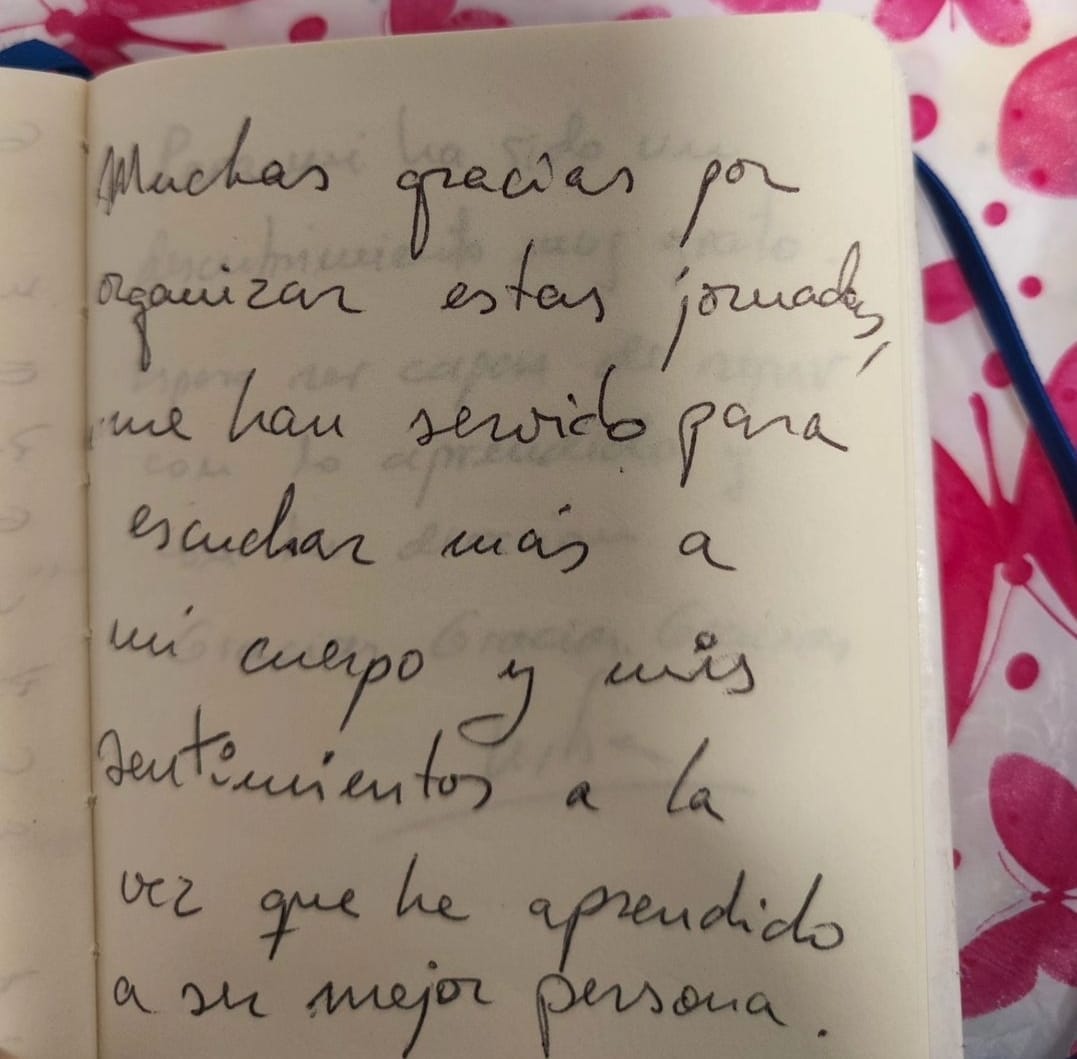 Muchas gracias por
organizar estas jornadas,
me han servido para
escuchar más a
mi cuerpo y mis
sentimientos a la
vez que he aprendido
a ser mejor persona.